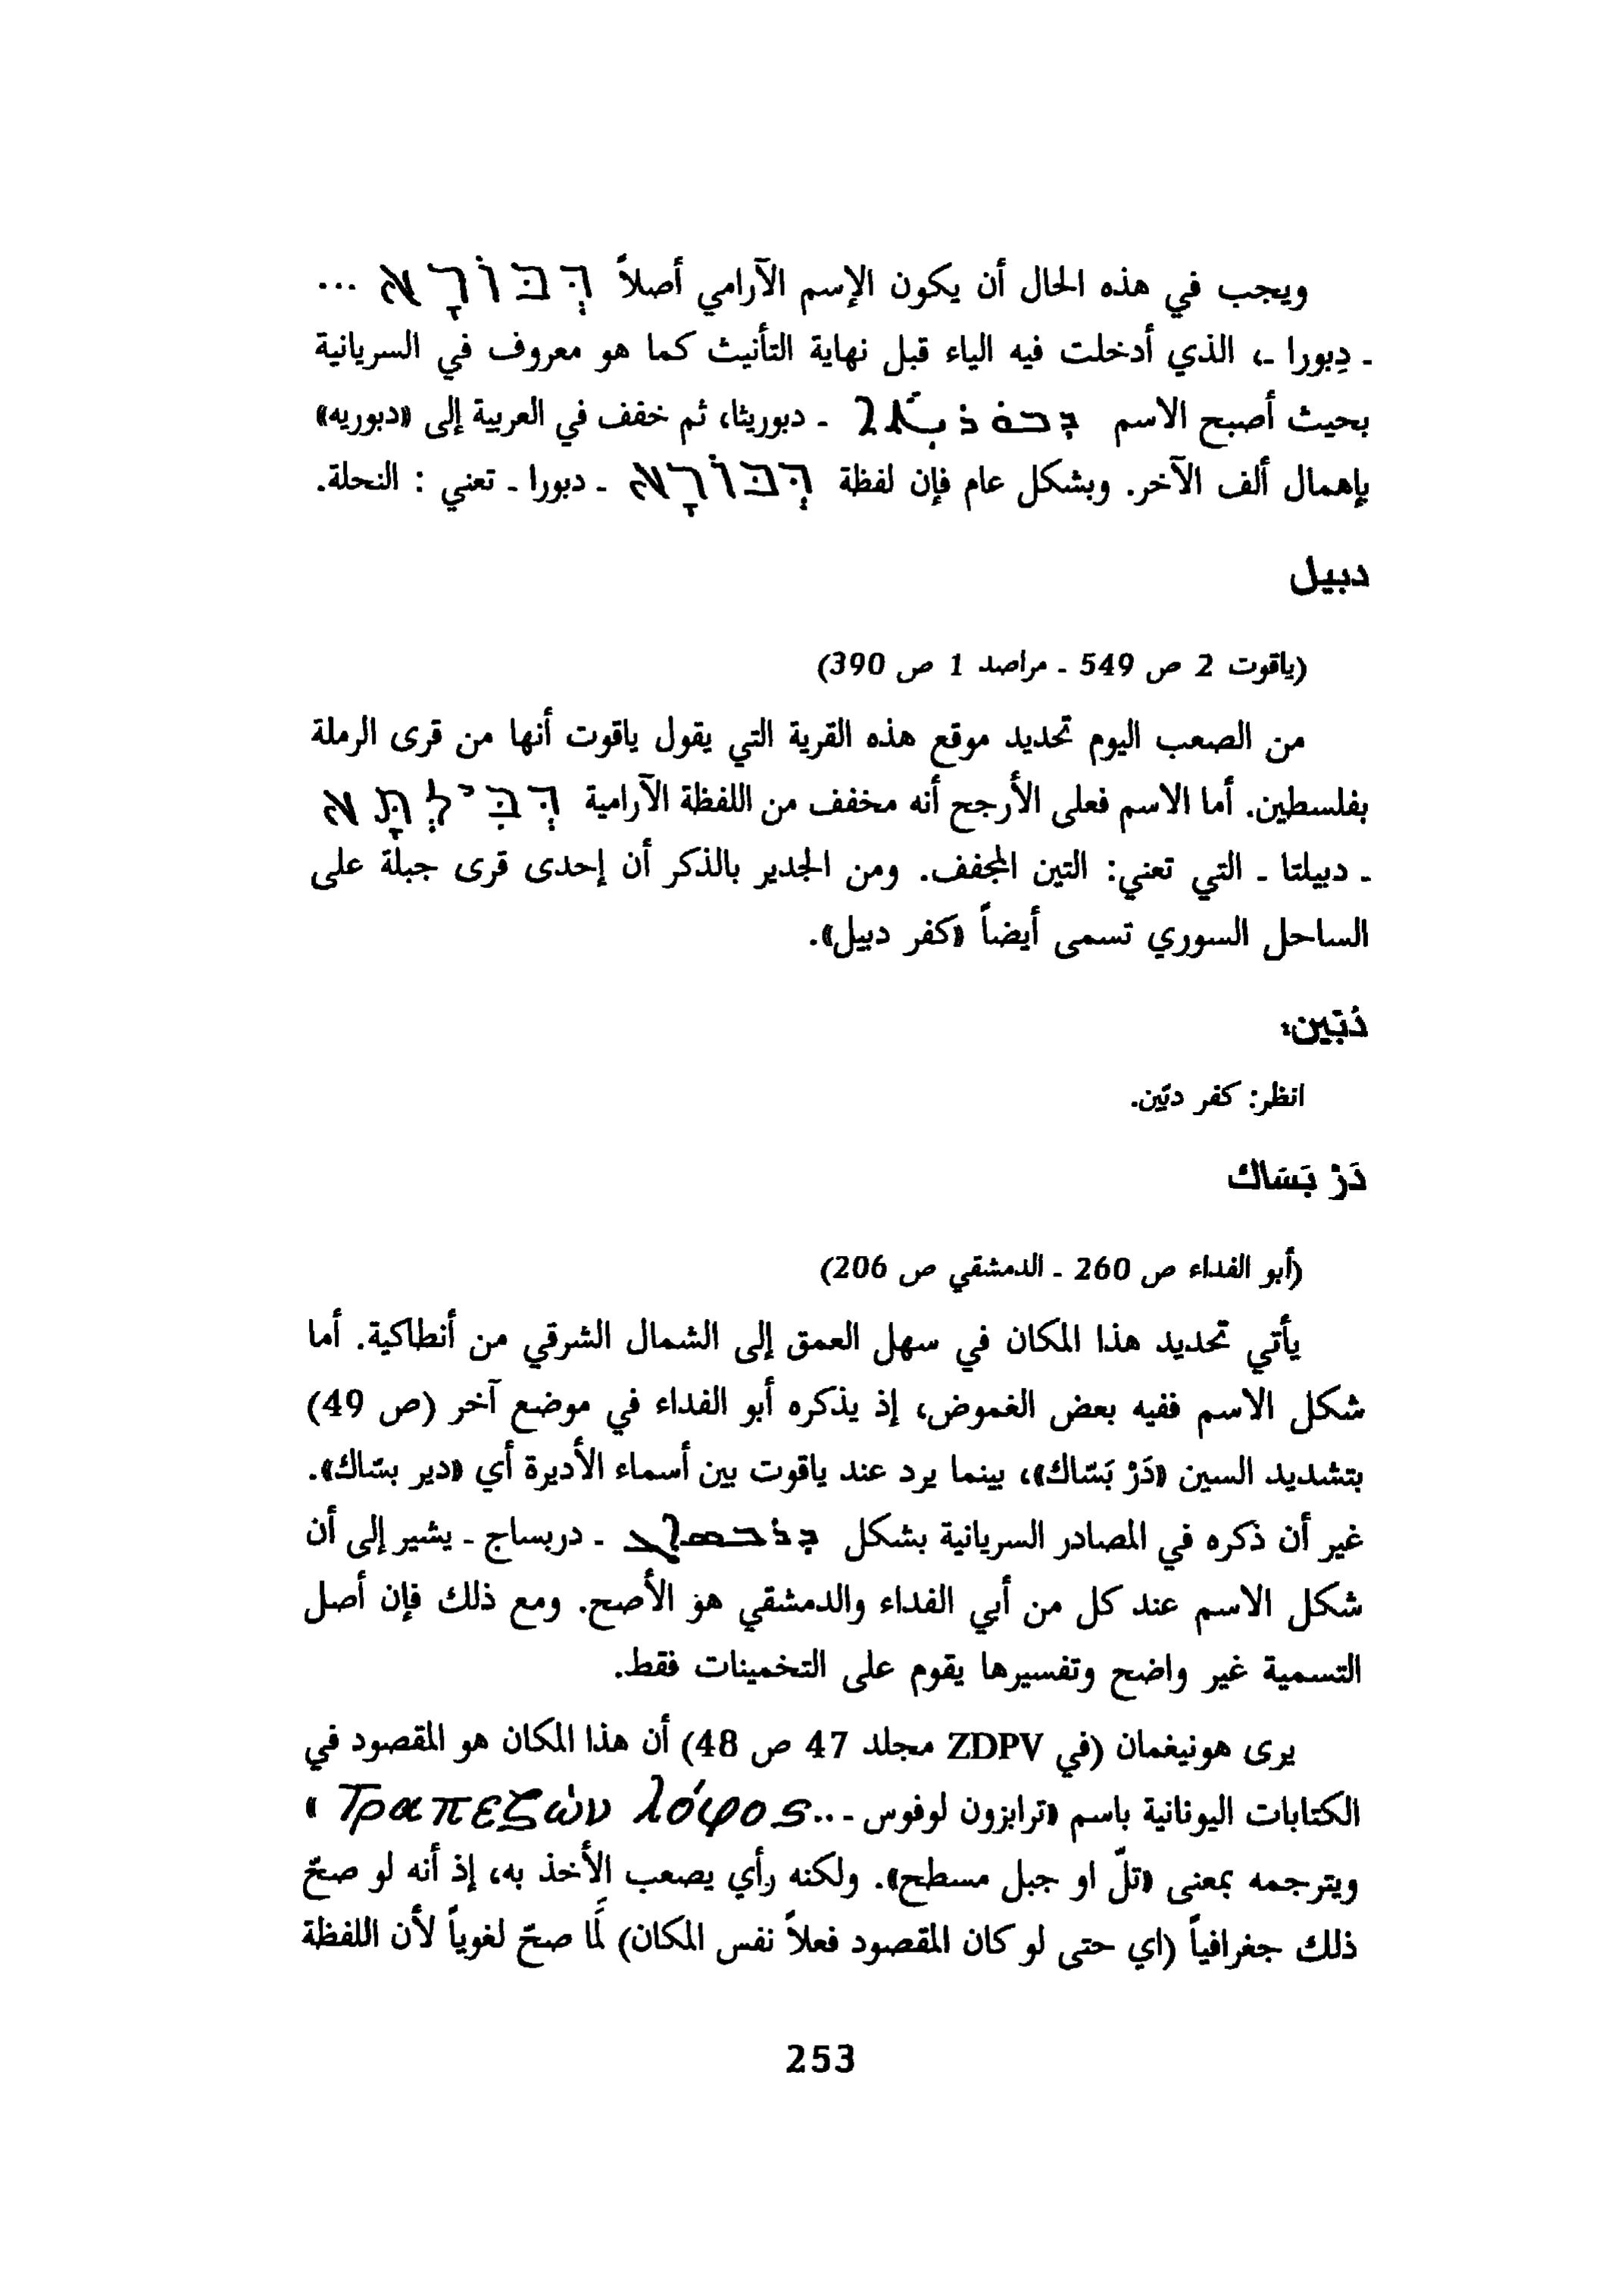 ويجب في هذه الحال أن يكون الإسم الآرامي أصلاً דְּבּוֹרָא ...
ـ دِبورا ـ، الذي أدخلت فيه الياء قبل نهاية التأنيث كما هو معروف في السريانية
بحيث أصبح الاسم ـ دبوريثا، ثم خفف في العربية إلى «دبوريه»
بإهمال ألف الآخر. وبشكل عام فإن لفظة דְּבּוֹרָא ـ دبورا ـ تعني : النحلة.
دبيل
(ياقوت 2 ص 549 ـ مراصد 1 ص 390)
من الصعب اليوم تحديد موقع هذه القرية التي يقول ياقوت أنها من قرى الرملة
بفلسطين. أما الاسم فعلى الأرجح أنه مخفف من اللفظة الآرامية דְּבִּילְתָּא
ـ دبيلتا ـ التي تعني: التين المجفف. ومن الجدير بالذكر أن إحدى قرى جبلة على
الساحل السوري تسمى أيضاً «كفر دبيل».
دُبّين:
انظر: كفر دبّين.
دَرْ بَسَاك
(أبو الفداء ص 260 ـ الدمشقي ص 206)
يأتي تحديد هذا المكان في سهل العمق إلى الشمال الشرقي من أنطاكية. أما
شكل الاسم ففيه بعض الغموض، إذ يذكره أبو الفداء في موضع آخر (ص 49)
بتشديد السين «دَرْ بَسّاك»، بينما يرد عند ياقوت بين أسماء الأديرة أي «دير بسّاك».
غير أن ذكره في المصادر السريانية بشكل ܕܪܒܣܐܓ ـ دربساج ـ يشير إلى أن
شكل الاسم عند كل من أبي الفداء والدمشقي هو الأصح. ومع ذلك فإن أصل
التسمية غير واضح وتفسيرها يقوم على التخمينات فقط.
يرى هونيغمان (في ZDPV مجلد 47 ص 48) أن هذا المكان هو المقصود في
الكتابات اليونانية باسم «ترابزون لوفوس ـ .. Τραπεζὼν λόφος»
ويترجمه بمعنى «تلّ او جبل مسطح». ولكنه رأي يصعب الأخذ به، إذ أنه لو صحّ
ذلك جغرافياً (اي حتى لو كان المقصود فعلاً نفس المكان) لَما صحّ لغوياً لأن اللفظة
253